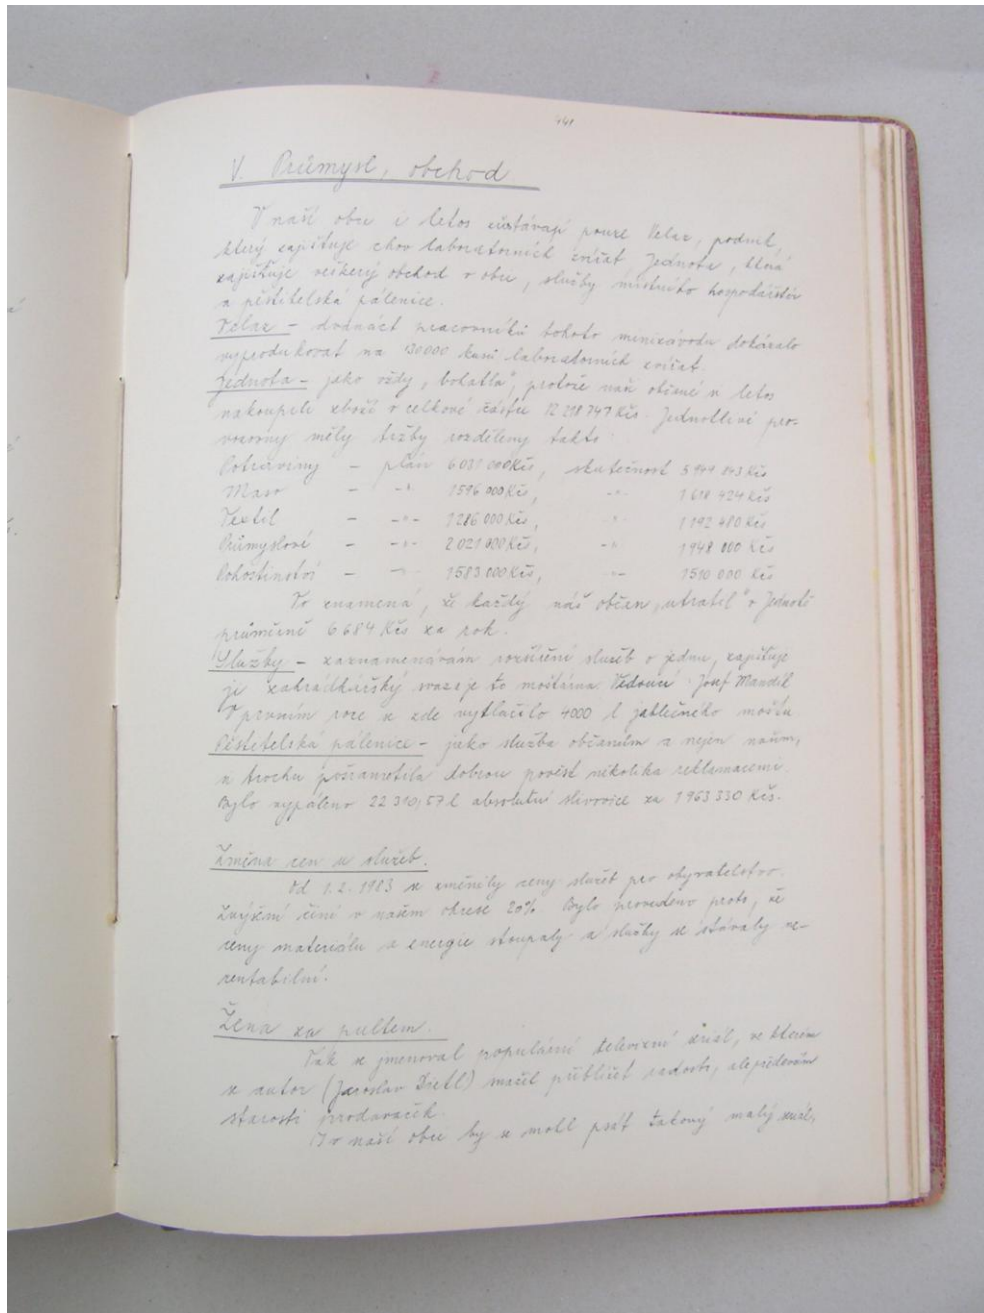 441
V. Průmysl, obchod
V naší obci i letos zůstávají pouze Velaz, podnik,
který zajišťuje chov laboratorních zvířat Jednota, která
zajišťuje veškerý obchod v obci, služby místního hospodářství
a pěstitelská pálenice.
Velaz – dvanáct pracovníků tohoto minizávodu dokázalo
vyprodukovat na 130000 kusů laboratorních zvířat.
Jednota – jako vždy „bohatla", protože naši občané v letos
nakoupili zboží v celkové částce 12 218 747 Kčs. Jednotlivé pro-
vozovny měly tržby rozděleny takto:
Potraviny – plán 6 031 000 Kčs, skutečnost 5 944 843 Kčs
Maso – -"- 1 596 000 Kčs, -"- 1 618 424 Kčs
Textil – -"- 1 286 000 Kčs, -"- 1 192 480 Kčs
Průmyslové – -"- 2 021 000 Kčs, -"- 1 948 000 Kčs
Pohostinství – -"- 1 583 000 Kčs, -"- 1 510 000 Kčs
To znamená, že každý náš občan „utratil" v Jednotě
průměrně 6 684 Kčs za rok.
Služby – zaznamenávám rozšíření služeb o jednu, zajišťuje
ji zahrádkářský svaz je to moštárna Vedoucí - Josef Mandík
V prvním roce se zde vytlačilo 4000 l jablečného moštu.
Pěstitelská pálenice – jako služba občanům a nejen našim,
si trochu pošramotila dobrou pověst několika reklamacemi.
Bylo vypáleno 22 310,57 l absolutní slivovice za 1 963 330 Kčs.
Změna cen u služeb.
Od 1.2.1983 se změnily ceny služeb pro obyvatelstvo.
Zvýšení činí v našem okrese 20% Bylo provedeno proto, že
ceny materiálu a energie stoupaly a služby se stávaly ne-
rentabilní.
Žena za pultem.
Tak se jmenoval populární televizní seriál, ve kterém
se autor (Jaroslav Dietl) snažil přiblížit radosti, ale především
starosti prodavaček.
I v naší obci by se mohl psát takový malý seriál,